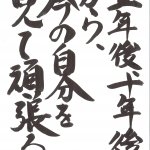 五年後、十年後
から、
今の自分を
見て頑張る